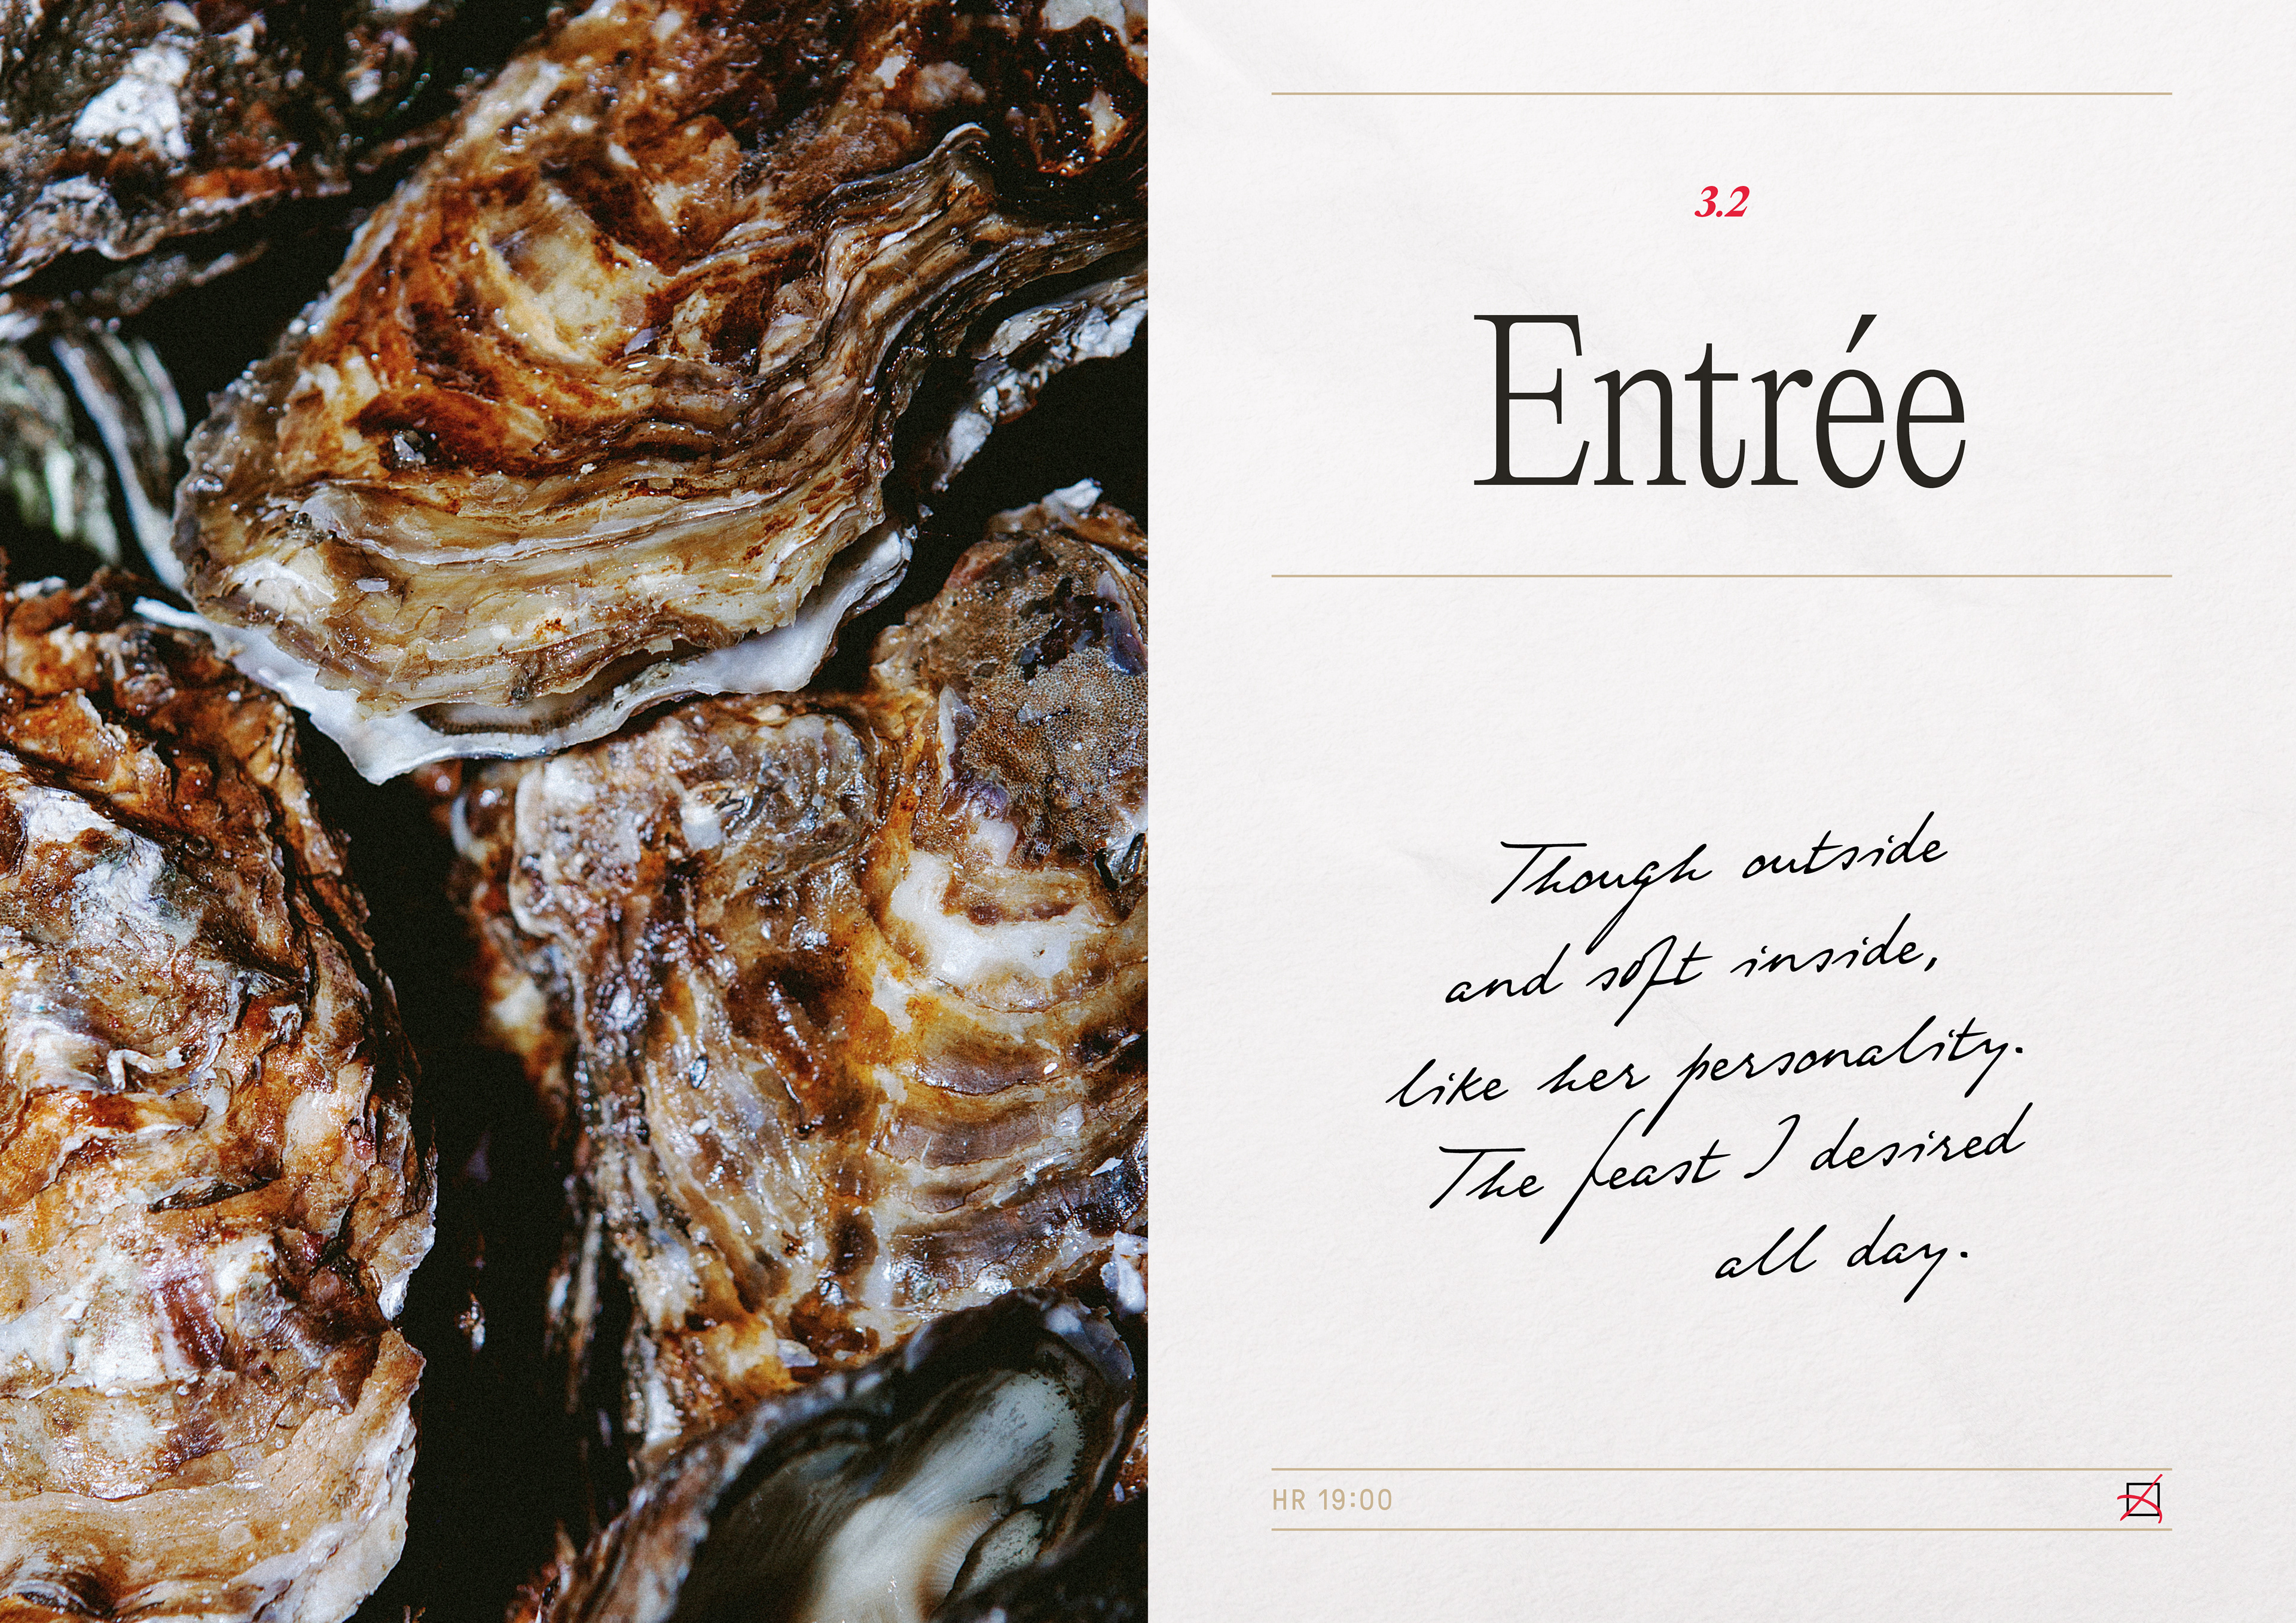 3.2
Entrée
Though outside
and soft inside,
like her personality.
The feast I desired
all day.
HR 19:00